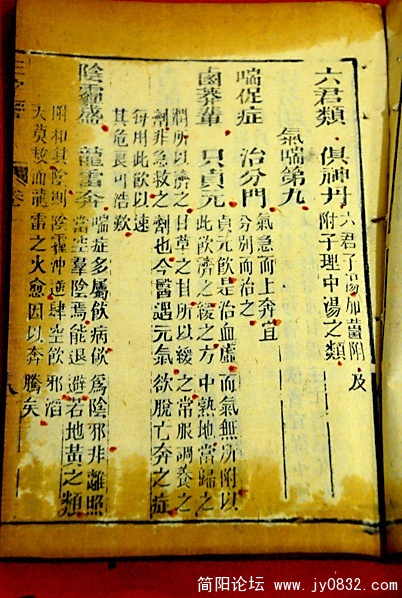 六君類 俱神丹
六君子湯加薑附及
附子理中湯之類
氣喘第九
喘促症 治分門
氣急而上奔宜
分別而治之
鹵莽輩 只貞元
貞元飲是治血虛而氣無所附以
此飲濟之緩之方中熟地當歸之
潤所以濟之甘草之甘所以緩之常服調養之
劑非急救之劑也今醫遇元氣欲脫亡奔之症
每用此飲以速
其危良可浩歎
陰霾盛 龍雷奔
喘症多屬飲病飲為陰邪非離照
當空羣陰焉能退避若地黃之類
附和其陰則陰霾沖逆肆空飲邪滔
天莫救而龍雷之火愈因以奔騰矣
简阳论坛 www.jy0832.com